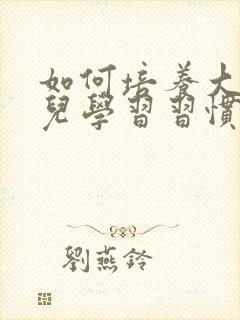 如何培養大
兒學習習慣
劉燕鈴